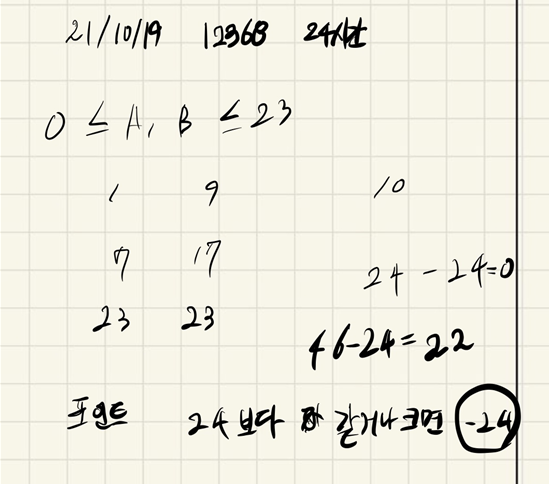 21/10/19 12368 24시간
0 ≤ A, B ≤ 23
1 9 10
7 17 24 - 24=0
23 23 46-24=22
포인트 24보다 같거나 크면 -24